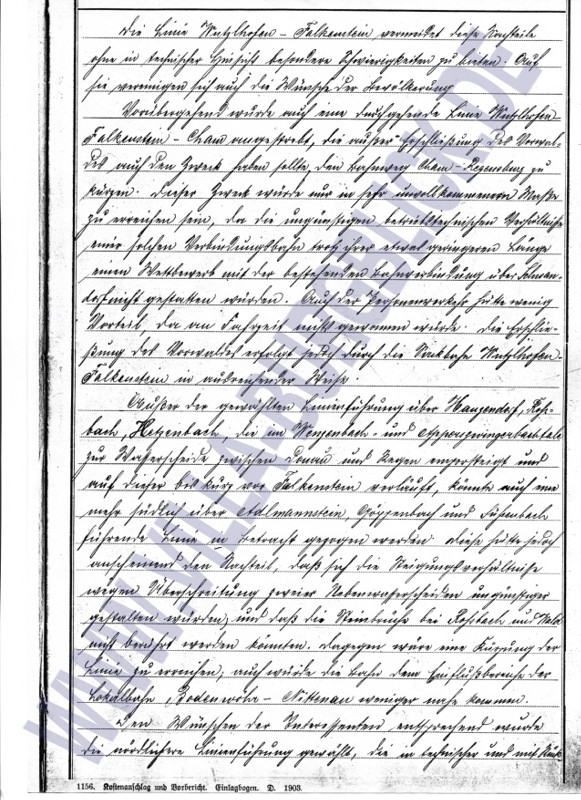 Die Linie Wutzlhofen - Falkenstein vermeidet diese Nachteile
ohne in technischer Hinsicht besondere Schwierigkeiten zu bieten. Auf
sie vereinigen sich auch die Wünsche der Bevölkerung.
Vorübergehend wurde auch eine durchgehende Linie Wutzlhofen-
Falkenstein - Cham angestrebt, die außer Erschließung des Vorwal-
des auch den Zweck haben sollte, den Bahnweg Cham - Regensburg zu
kürzen. Dieser Zweck würde nur in sehr unvollkommenem Maße
zu erreichen sein, da die ungünstigen betriebstechnischen Verhältnisse
einer solchen Verbindungsbahn trotz ihrer etwas geringeren Länge
einen Wettbewerb mit der bestehenden Bahnverbindung über Schwan-
dorf nicht gestatten würden. Auch der Personenverkehr hätte wenig
Vorteil, da an Fahrzeit nichts gewonnen würde. Die Erschlie-
ßung des Vorwaldes erfolgt jedoch durch die Stichbahn Wutzlhofen-
Falkenstein in ausreichender Weise.
Außer der gewählten Linienführung über Hauzendorf, Roß-
bach, Hetzenbach, die im Wenzenbach- und
zur Wasserscheide zwischen Donau und Regen emporsteigt und
auf dieser bis kurz vor Falkenstein verläuft, könnte auch eine
mehr südlich über Adlmannstein, Göppenbach und Süssenbach
führende Linie in Betracht gezogen werden. Diese hätte jedoch
anscheinend den Nachteil, daß sich die Steigungsverhältnisse
wegen Überschreitung zweier Nebenwasserscheiden ungünstiger
gestalten würden, und daß die Steinbrüche bei Roßbach und Wald
nicht berührt werden könnten. Dagegen wäre eine Kürzung der
Linie zu erreichen, auch würde die Bahn dem Einflußbereiche der
Lokalbahn Bodenwöhr - Nittenau weniger nahe kommen.
Den Wünschen der Interessenten entsprechend wurde
die nördlichere Linienführung gewählt, die in technischer und mit Rück-
1156. Kostenanschlag und Vorbericht. Einlagbogen. D. 1903.